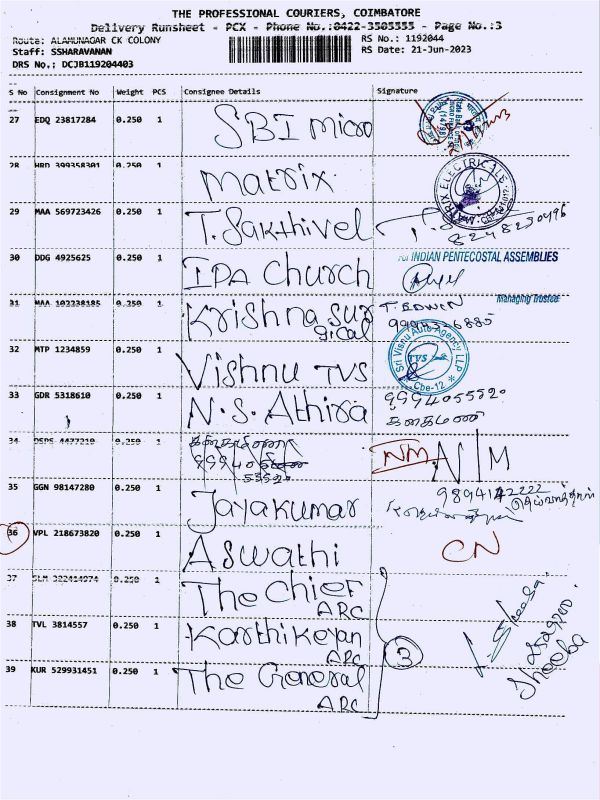 THE PROFESSIONAL COURIERS, COIMBATORE
Delivery Runsheet - PCX - Phone No.:0422-3505555 - Page No.:3
Route: ALAMUNAGAR CK COLONY RS No.: 1192044
Staff: SSHARAVANAN RS Date: 21-Jun-2023
DRS No.: DCJB119204403
S No Consignment No Weight PCS Consignee Details Signature
27 EDQ 23817284 0.250 1 SBI micro
28 HRD 399358301 0.250 1 Matrix
MATRIX ELECTRICALS
29 MAA 569723426 0.250 1 T. Sakthivel
30 DDG 4925625 0.250 1 IPA church
For INDIAN PENTECOSTAL ASSEMBLIES
Managing Trustee
31 MAA 102238185 0.250 1 Krishna sur T. EDWIN
gical
32 MTP 1234859 0.250 1 Vishnu TVS
Sri Visnu Auto Agency LLP
TVS
Cbe-12
33 GDR 5318610 0.250 1 N.S. Athira 9994055520
34 0.250 1 NM N/M
99940
55520
35 GGN 98147280 0.250 1 Jayakumar
36 VPL 218673820 0.250 1 Aswathi CN
37 SLM 322414974 0.250 1 The chief
ARC
38 TVL 3814557 0.250 1 Karthikeyan
ARC
39 KUR 529931451 0.250 1 The General
ARC
3
Sheeba
Sheeba